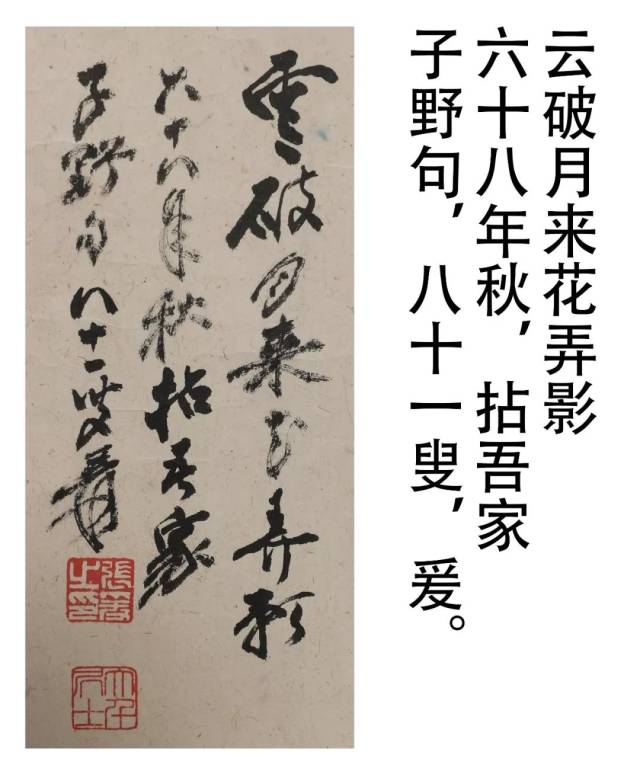 云破月来花弄影
六十八年秋，拈吾家
子野句，八十一叟，爰。
雲破月来花弄影
六十八年秋拈吾家
子野句八十一叟爰
張爰之印
大千居士